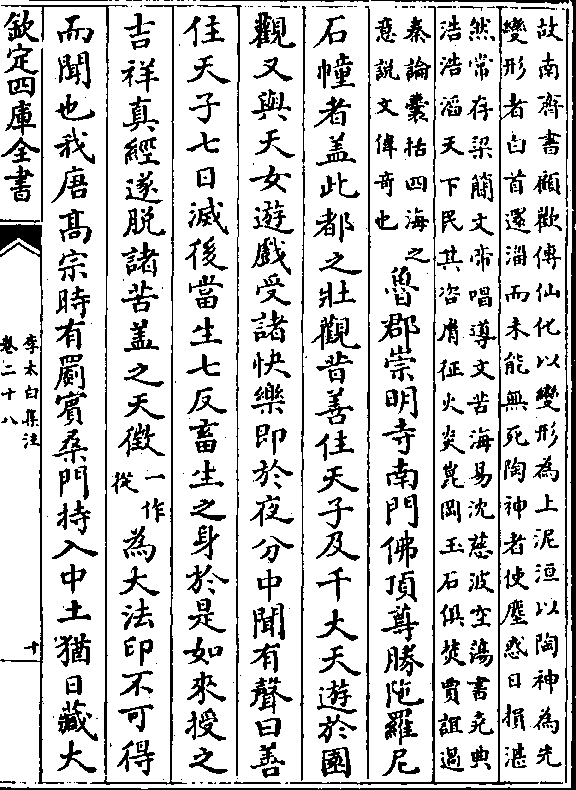 故南齊書顧歡傳仙化以變形為上泥洹以陶神為先
變形者白首還淄而未能無死陶神者使塵惑日損湛
然常存梁簡文帝唱導文苦海易沈慈波空蕩書堯典
浩浩滔天下民其咨胤征火炎崑岡玉石俱焚賈誼過
秦論囊括四海之
意説文偉竒也
魯郡崇明寺南門佛頂尊勝陁羅尼
石幢者盖此都之壯觀昔善住天子及千大天遊於園
觀又與天女遊戲受諸快樂即於夜分中聞有聲曰善
住天子七日滅後當生七反畜生之身於是如來授之
吉祥真經遂脱諸苦盖之天徴
一作
從
為大法印不可得
而聞也我唐髙宗時有罽賓桑門持入中土猶日藏大
欽定四庫全書
李太白集注
卷二十八
十